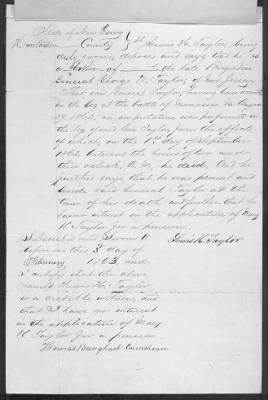 State of New Jersey
Hunterdon County } SS Lewis H. Taylor being
duly sworn deposes and says that he is
a brother of the late Brigadier
General George W. Taylor, of New Jersey,
That said General Taylor, having been wounded
in the leg at the battle of Manassas in August
27 1862, an amputation was performed on
the leg of said Gen Taylor from the effects
of which, on the 1st day of September
1862, between the hours of
, he died, And he
further says that he was present and
said General Taylor at the
time of his death and further that he
has no interest in the application of Mary
K Taylor for a pension.
Subscribed and sworn to
before me this 3 day of Lewis H. Taylor
February 1863 and
I certify that the above
named Lewis H. Taylor
is a credible witness and
that I have no interest
in the application of Mary
K Taylor for a pension
Thomas Banghart Commissioner